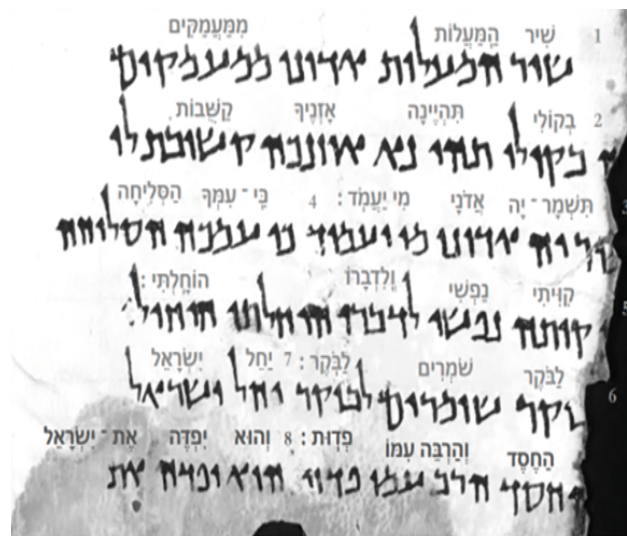 1 שִׁיר הַמַּעֲלוֹת מִמַּעֲמַקִּים
שיר המעלות אדוני ממעמקים
2 בְקוֹלִי תִּהְיֶינָה אָזְנֶיךָ קַשֻּׁבוֹת
בקולי תהי נא אוזנכה קשובת לי
3 תִּשְׁמָר־יָהּ אֲדֹנָי מִי יַעֲמֹד׃ 4 כִּי־עִמְּךָ הַסְּלִיחָה
יה אדוני מי יעמוד כי עמכה הסליחה
5 קִוִּיתִי נַפְשִׁי וְלִדְבָרוֹ הוֹחָלְתִּי׃
קותה נפשי לדברו הוחלתי הוחילי
6 לַבֹּקֶר שֹׁמְרִים לַבֹּקֶר׃ 7 יַחֵל יִשְׂרָאֵל
שומרים לבוקר יחל ישראל
הַחֶסֶד וְהַרְבֵּה עִמּוֹ פְדוּת׃ 8 וְהוּא יִפְדֶּה אֶת־יִשְׂרָאֵל
החסד הרבה עמו פדות הוא יפדה את